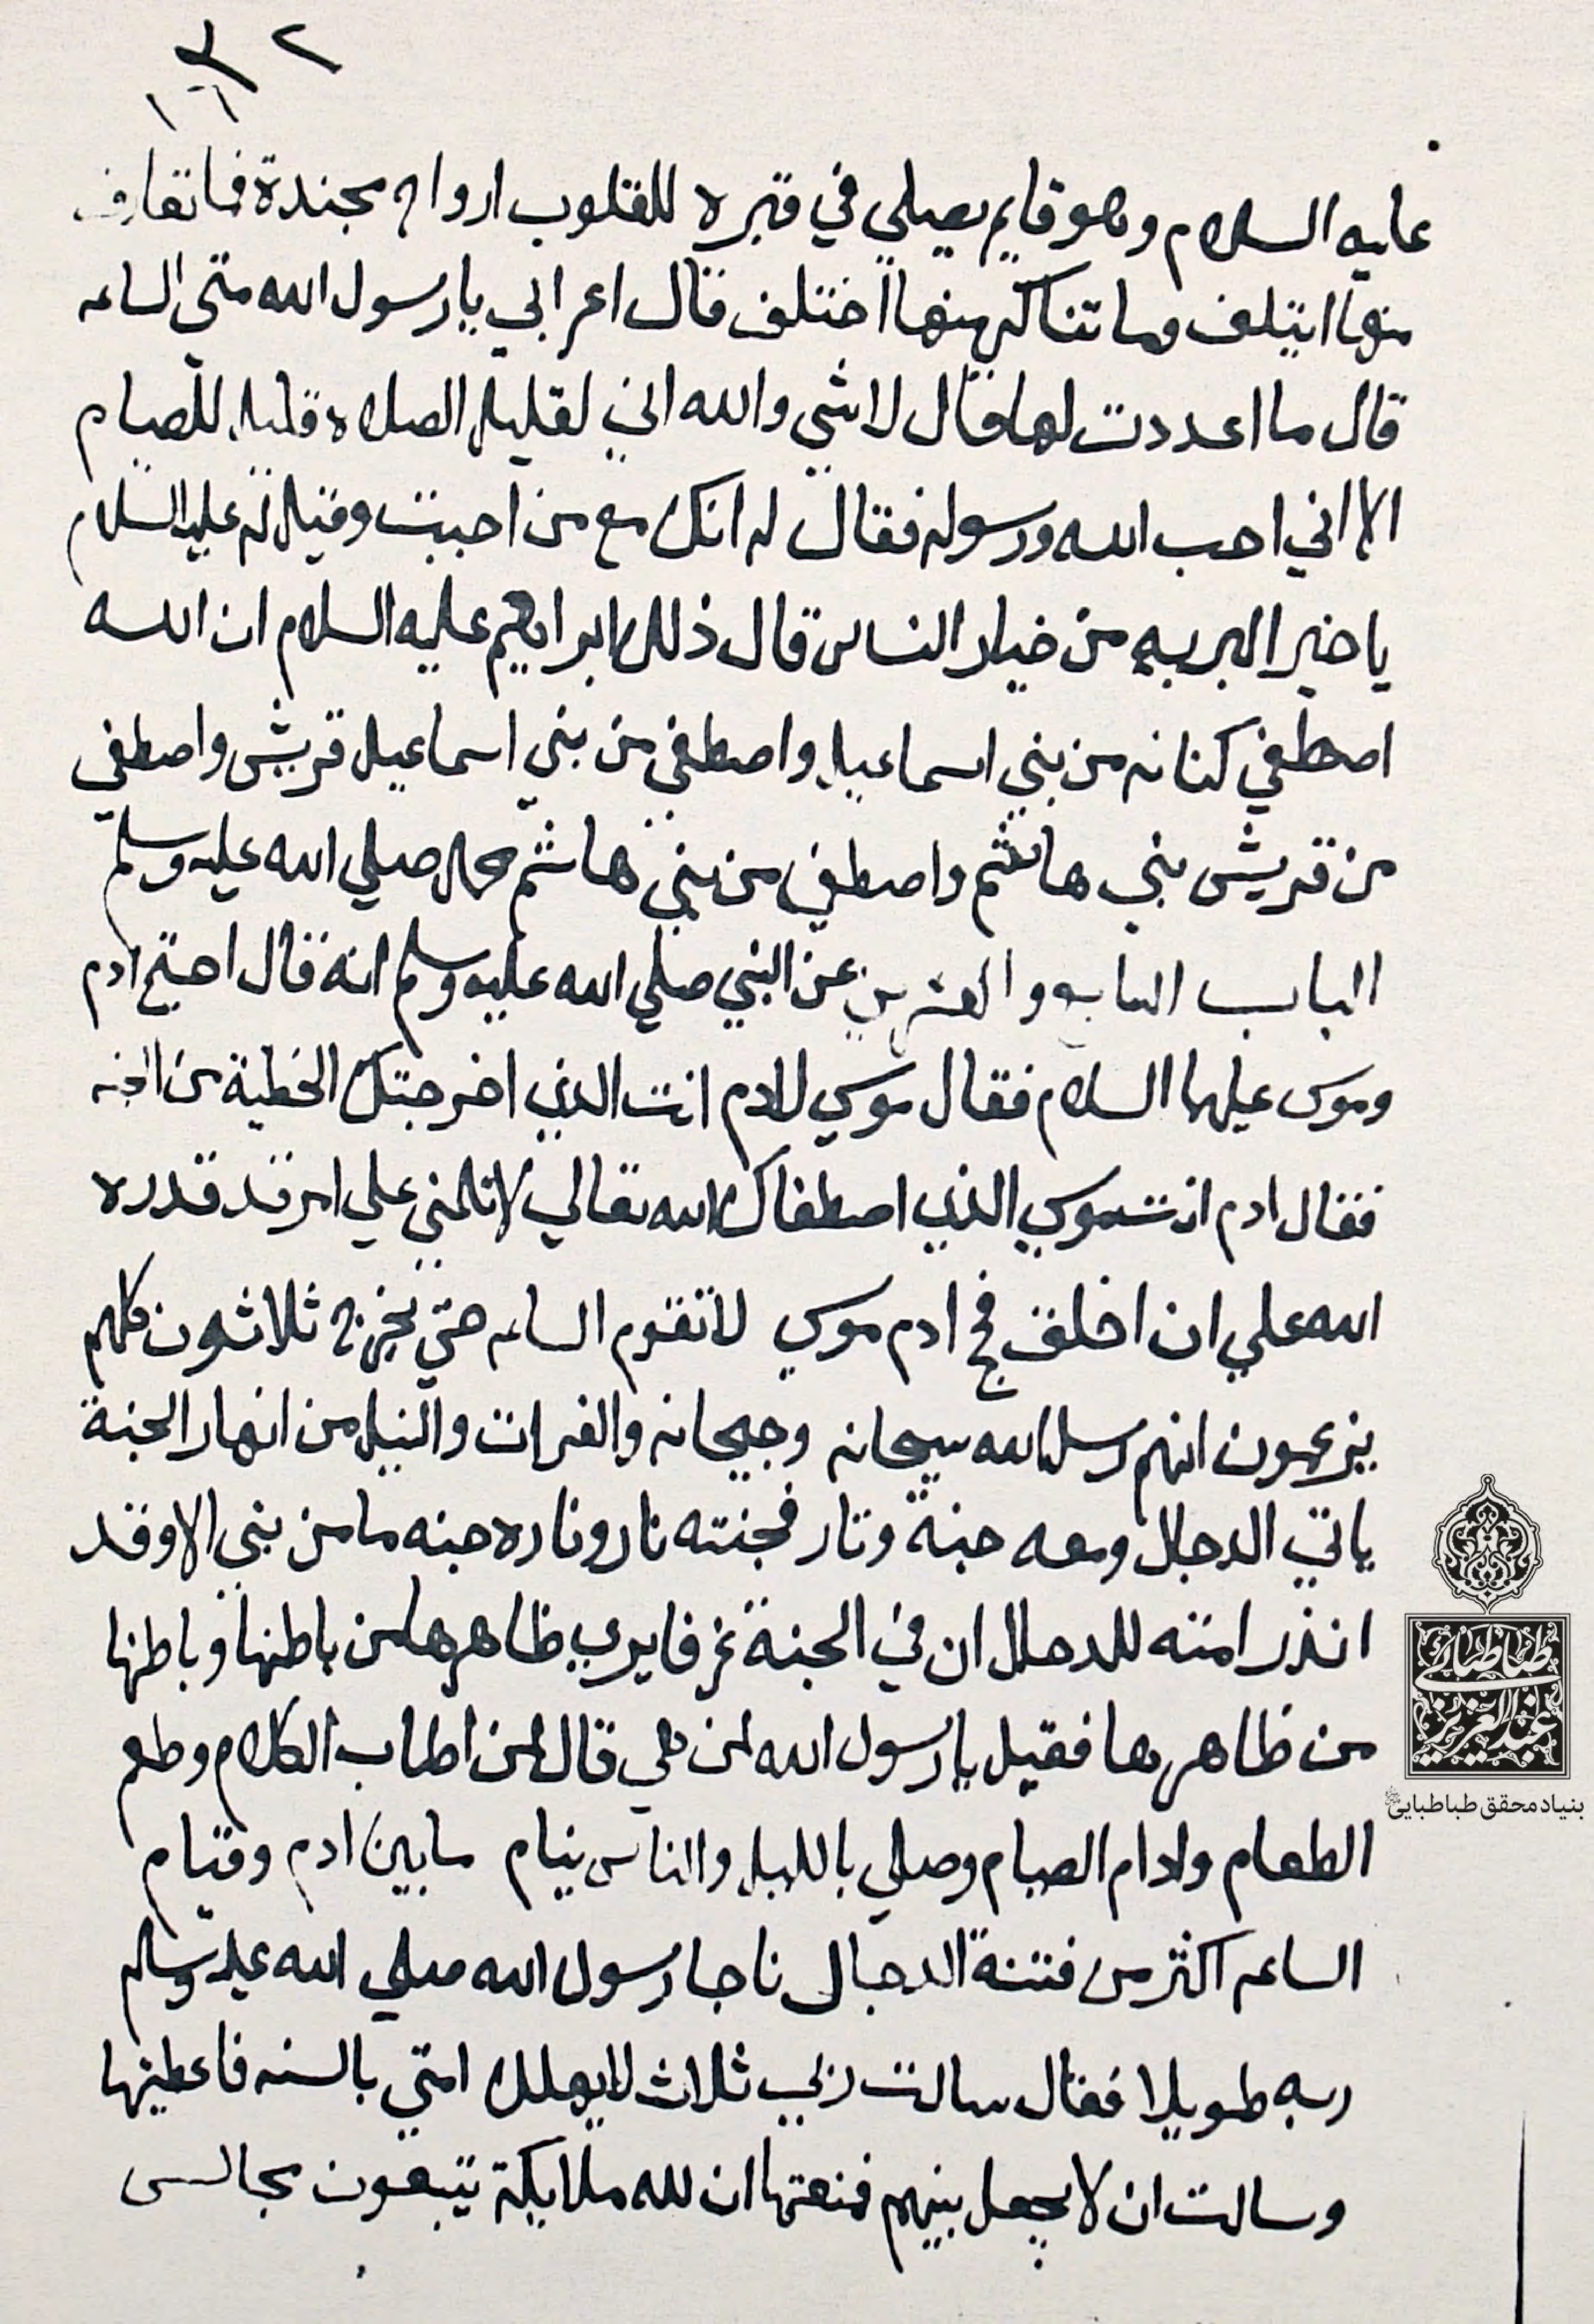 ٣٢
عليه السلام وهو قايم يصلي في قبره للقلوب ارواح مجندة فما تعارف
منها ايتلف وما تناكر منها اختلف قال اعرابي يا رسول الله متى الساعه
قال ما اعددت لها قال لا شي والله اني لقليل الصلاه قليل الصيام
الا اني احب الله ورسوله فقال له انك مع من احببت وقيل له عليه السلام
يا خير البريه من خيار الناس قال ذلك ابراهيم عليه السلام ان الله
اصطفي كنانه من بني اسماعيل واصطفي من بني اسماعيل قريش واصطفي
من قريش بني هاشم واصطفي من بني هاشم محمد صلي الله عليه وسلم
الباب السابع والعشرين عن النبي صلي الله عليه وسلم انه قال احتج ادم
وموسى عليهما السلام فقال موسي لادم انت الذي اخرجتك الخطية من الجنه
فقال ادم انت موسي الذي اصطفاك الله تعالي لا تلمني علي امر قد قدره
الله علي ان اخلق فحج ادم موسي لا تقوم الساعه حتي يخرج ثلاثون كلهم
يزعمون انهم رسل الله سيحانه وجيحانه والفرات والنيل من انهار الجنة
ياتي الدجال ومعه جنة ونار فجنته نار وناره جنه ما من نبي الا وقد
انذر امته للدجال ان في الجنة غرفا يري ظاهرها من باطنها وباطنها
من ظاهرها فقيل يا رسول الله لمن هي قال لمن اطاب الكلام وطعم
الطعام وادام الصيام وصلي بالليل والناس نيام ما بين ادم وقيام
الساعه اكثر من فتنة الدجال ناجا رسول الله صلي الله عليه وسلم
ربه طويلا فقال سالت ربي ثلاث لا يهلك امتي بالسنه فاعطيتها
وسالت ان لا يجعل بينهم فمنعتها ان لله ملايكة يتبعون مجالس
طباطبائي
عبدالعزيز
بنیاد محقق طباطبایی